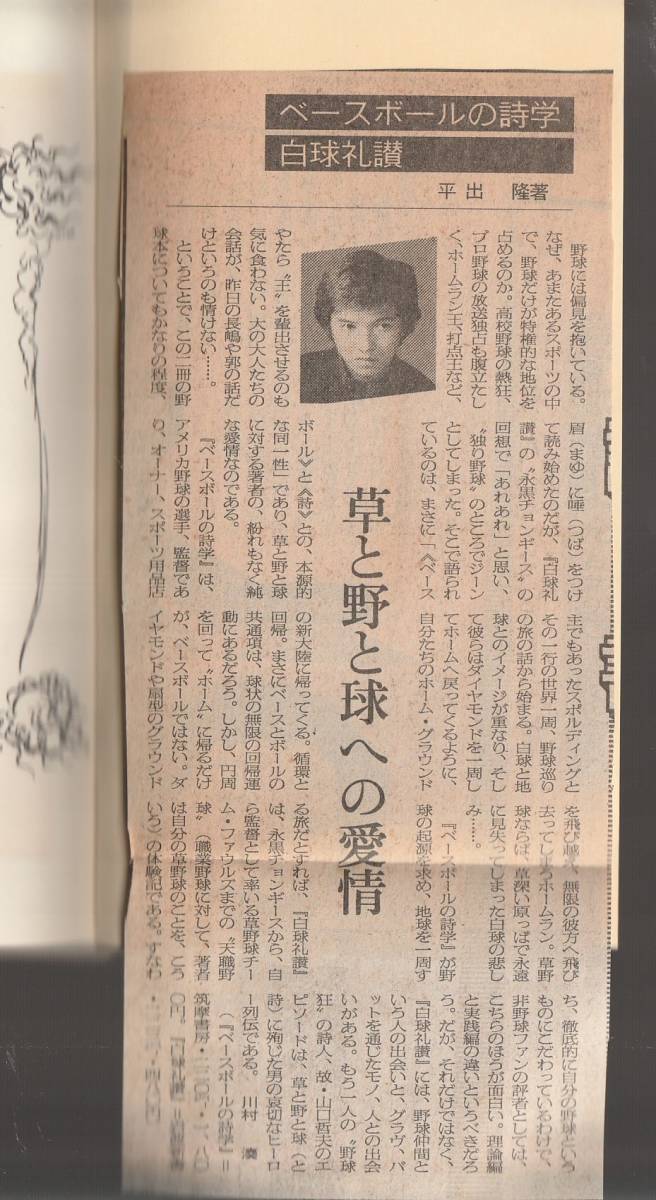 ベースボールの詩学
白球礼讃
平出　隆著
草と野と球への愛情
野球には偏見を抱いている。
なぜ、あまたあるスポーツの中
で、野球だけが特権的な地位を
占めるのか。高校野球の熱狂、
プロ野球の放送独占も腹立たし
く、ホームラン王、打点王など、
やたら〝王〟を輩出させるのも
気に食わない。大の大人たちの
会話が、昨日の長嶋や郭の話だ
けというのも情けない……。
ということで、この二冊の野
球本についてもかなりの程度、
眉（まゆ）に唾（つば）をつけ
て読み始めたのだが、『白球礼
讃』の〝永黒チョンギース〟の
回想で「あれあれ」と思い、
〝独り野球〟のところでジーン
としてしまった。そこで語られ
ているのは、まさに「《ベース
ボール》と《詩》との、本源的
な同一性」であり、草と野と球
に対する著者の、紛れもなく純
な愛情なのである。
『ベースボールの詩学』は、
アメリカ野球の選手、監督であ
り、オーナー、スポーツ用品店
主でもあったスポルディングと
その一行の世界一周、野球巡り
の旅の話から始まる。白球と地
球とのイメージが重なり、そし
て彼らはダイヤモンドを一周し
てホームへ戻ってくるように、
自分たちのホーム・グラウンド
の新大陸に帰ってくる。循環と
回帰。まさにベースとボールの
共通項は、球状の無限の回帰運
動にあるだろう。しかし、円周
を回って〝ホーム〟に帰るだけ
が、ベースボールではない。ダ
イヤモンドや扇型のグラウンド
を飛び越え、無限の彼方へ飛び
去ってしまうホームラン。草野
球ならば、草深い原っぱで永遠
に見失ってしまった白球の悲し
み……。
『ベースボールの詩学』が野
球の起源を求め、地球を一周す
る旅だとすれば、『白球礼讃』
は、永黒チョンギースから、自
ら監督として率いる草野球チー
ム・ファウルズまでの〝天職野
球〟（職業野球に対して、著者
は自分の草野球のことを、こう
いう）の体験記である。すなわ
ち、徹底的に自分の野球という
ものにこだわっているわけで、
非野球ファンの評者としては、
こちらのほうが面白い。理論編
と実践編の違いというべきだろ
う。だが、それだけではなく、
『白球礼讃』には、野球仲間と
いう人の出会いと、グラヴ、バ
ットを通じたモノ、人との出会
いがある。もう一人の〝野球
狂〟の詩人、故・山口哲夫のエ
ピソードは、草と野と球（と
詩）に殉じた男の哀切なヒーロ
ー列伝である。　川村　湊
（『ベースボールの詩学』＝
筑摩書房・